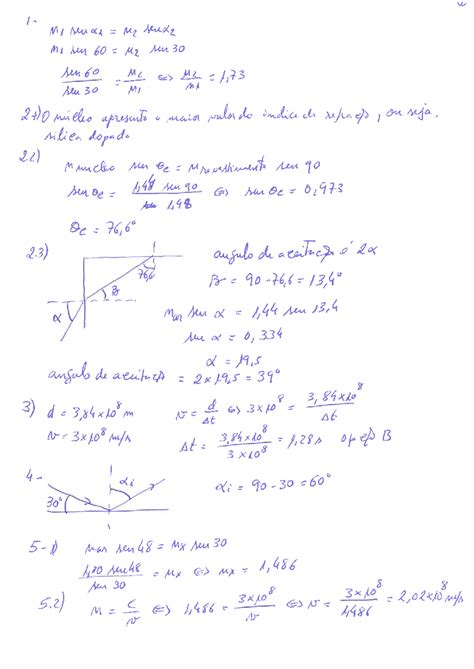 1-
n1 sen α1 = n2 sen α2
n1 sen 60 = n2 sen 30
sen 60 / sen 30 = n2 / n1 ⇔ n2 / n1 = 1,73
2.1) O núcleo apresenta o maior valor do índice de refração, ou seja,
sílica dopada
2.2)
n núcleo sen θc = n revestimento sen 90
sen θc = sen 90 / 1,48 ⇔ sen θc = 0,973
θc = 76,6°
2.3)
76,6
β
α
angulo de aceitação é 2α
β = 90 - 76,6 = 13,4°
nar sen α = 1,44 sen 13,4
sen α = 0,334
α = 19,5
angulo de aceitação = 2 × 19,5 = 39°
3) d = 3,84×10^8 m
v = d / Δt ⇔ 3×10^8 = 3,84×10^8 / Δt
v = 3×10^8 m/s
Δt = 3,84×10^8 / 3×10^8 = 1,28 s opção B
4-
30°
αi
αi = 90 - 30 = 60°
5-1) nar sen 48 = nx sen 30
1,00 sen 48 / sen 30 = nx ⇔ nx = 1,486
5.2) n = c / v ⇔ 1,486 = 3×10^8 / v ⇔ v = 3×10^8 / 1,486 = 2,02×10^8 m/s